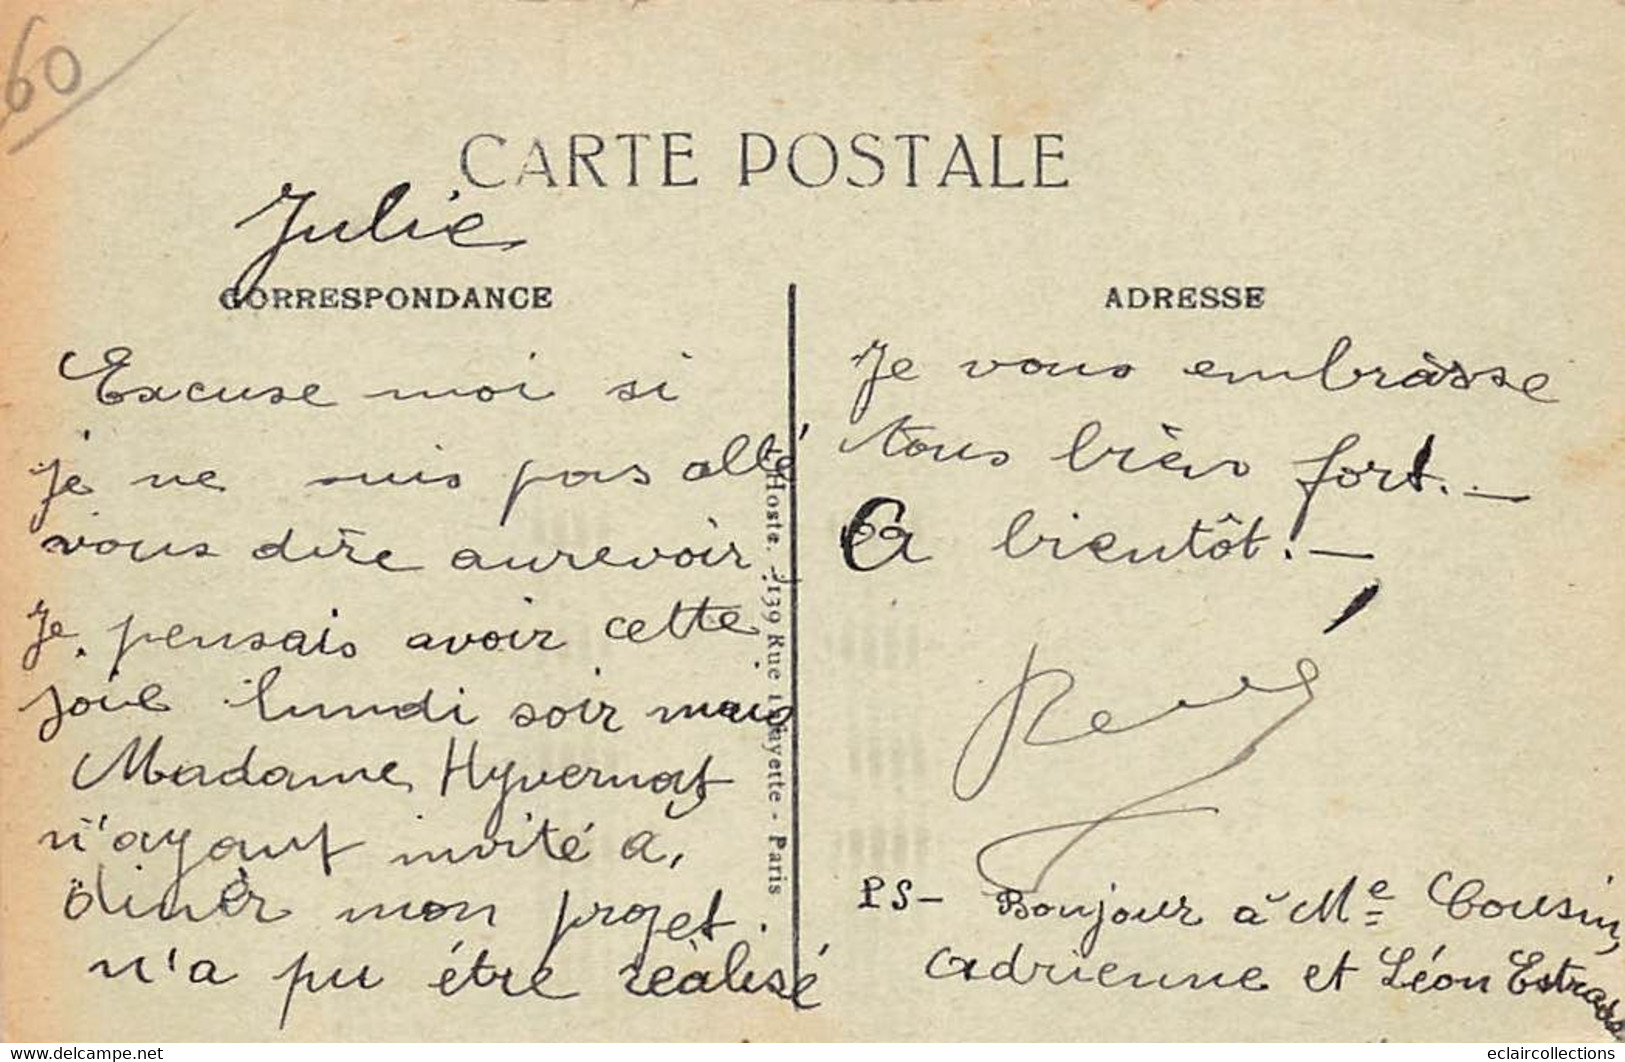 60
CARTE POSTALE
Julie
CORRESPONDANCE
Excuse moi si
je ne suis pas allé
vous dire aurevoir.
Je pensais avoir cette
joie lundi soir mais
Madame Hyvernat
n'ayant invité a,
diner mon projet.
n'a pu étre réalisé
Hoste. - 139 Rue Lafayette - Paris
ADRESSE
Je vous embrasse
tous bien fort. —
A bientôt! —
René
PS - Bonjour à Me Cousin,
Adrienne et Léon
eclaircollections